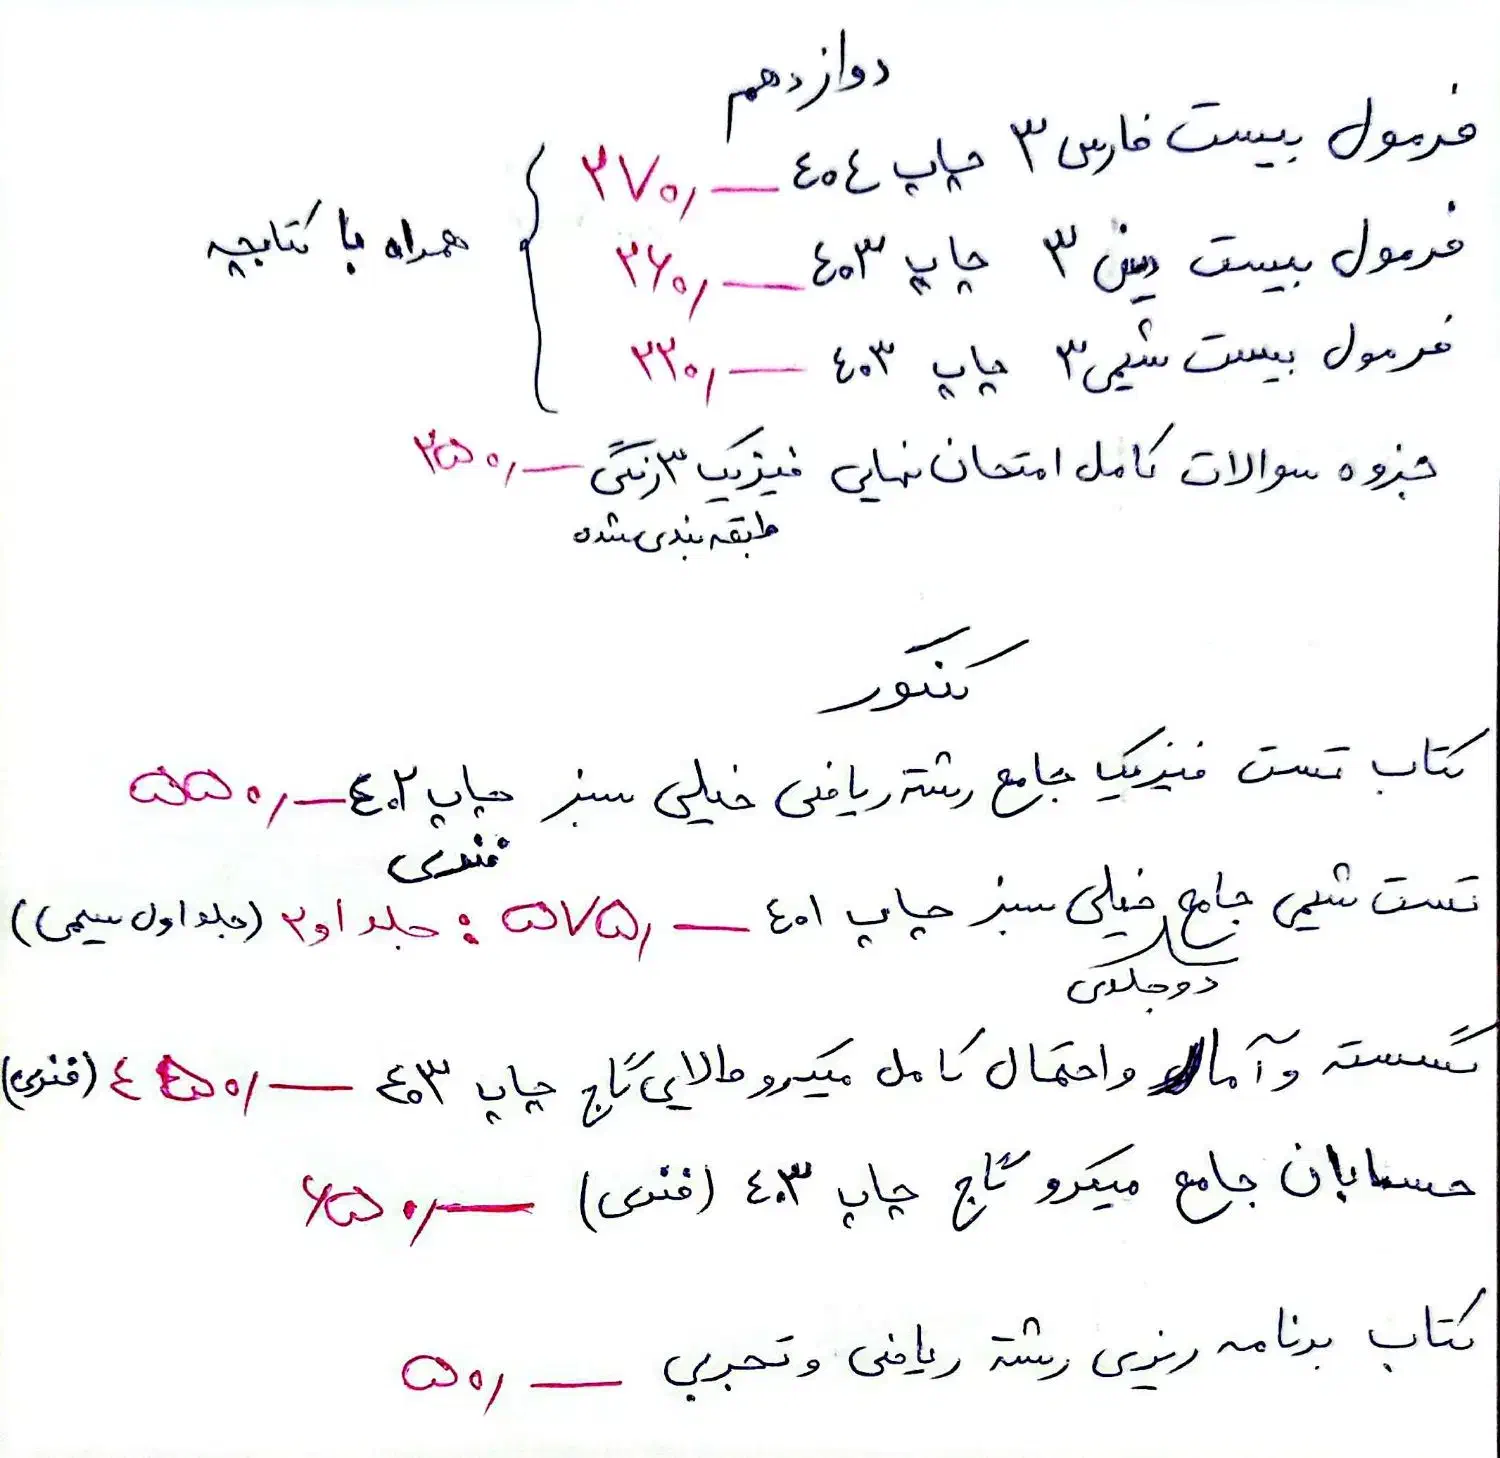 دوازدهم
فرمول بیست فارسی ۳ چاپ ٤٠٤ — ۲۷۰٫
فرمول بیست دینی ۳ چاپ ٤٠۳ — ۲۶۰٫
فرمول بیست شیمی ۳ چاپ ٤٠۳ — ۲۲۰٫
همراه با کتابچه
جزوه سوالات کامل امتحان نهایی فیزیک ۳ رنگی — ۲۵۰٫
طبقه بندی شده
کنکور
کتاب تست فیزیک جامع رشته ریاضی خیلی سبز چاپ ٤٠۲ — ۵۵۰٫
فنری
تست شیمی جامع خیلی سبز چاپ ٤٠۱ — ۵۷۵٫ : جلد ۱ و ۲ (جلد اول سیمی)
دو جلدی
گسسته و آمار و احتمال کامل میکرو طلایی گاج چاپ ٤٠۳ — ٤۵۰٫ (فنری)
حسابان جامع میکرو گاج چاپ ٤٠۳ (فنری) — ۶۵۰٫
کتاب برنامه ریزی رشته ریاضی و تجربی — ۵۰٫